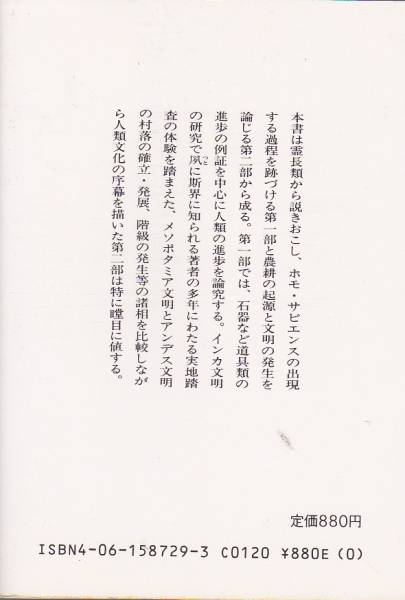 本書は霊長類から説きおこし、ホモ・サピエンスの出現
する過程を跡づける第一部と農耕の起源と文明の発生を
論じる第二部から成る。第一部では、石器など道具類の
進歩の例証を中心に人類の進歩を論究する。インカ文明
の研究で夙に斯界に知られる著者の多年にわたる実地踏
つと
査の体験を踏まえた、メソポタミア文明とアンデス文明
の村落の確立・発展、階級の発生等の諸相を比較しなが
ら人類文化の序幕を描いた第二部は特に瞠目に値する。
定価880円
ISBN4-06-158729-3 C0120 ¥880E (0)